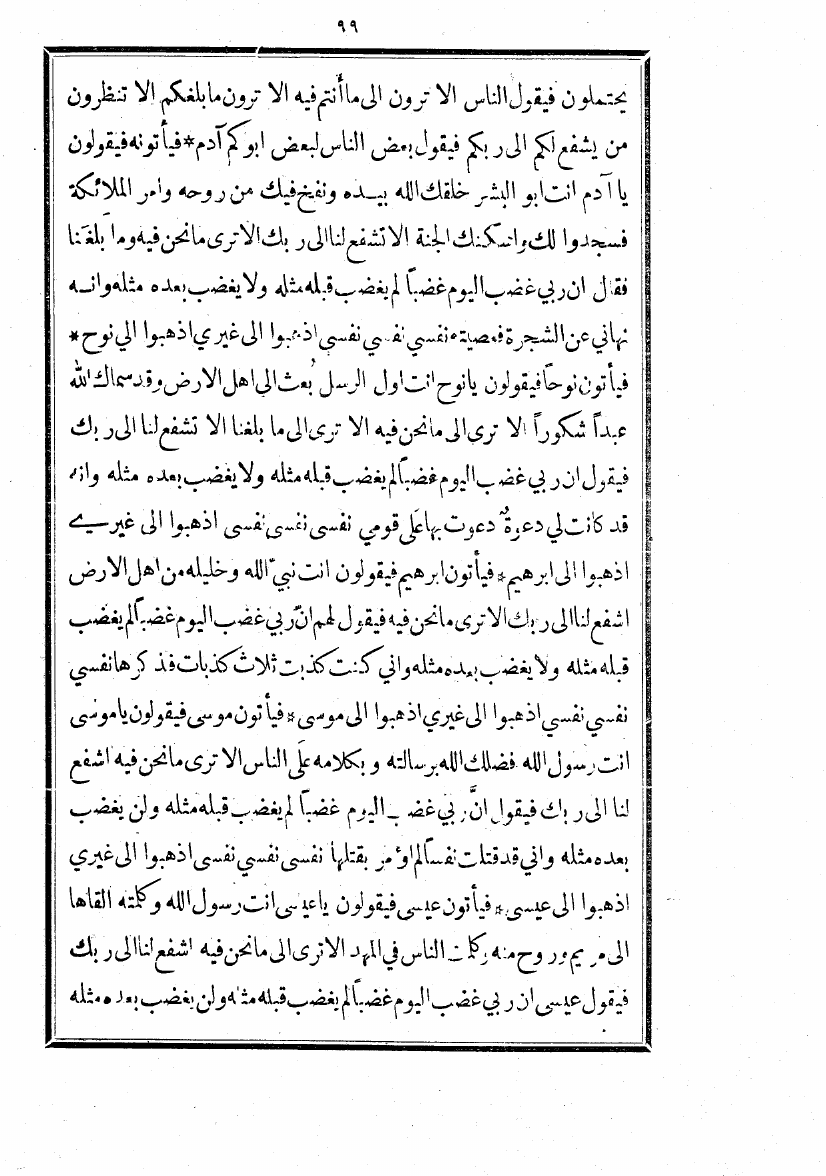 ٩٩
يحتملون فيقول الناس الا ترون الى ما أنتم فيه الا ترون ما بلغكم الا تنظرون
من يشفع لكم الى ربكم فيقول بعض الناس لبعض ابوكم آدم * فيأتونه فيقولون
يا آدم انت ابو البشر خلقك الله بيده ونفخ فيك من روحه وأمر الملائكة
فسجدوا لك واسكنك الجنة الا تشفع لنا الى ربك الا ترى ما نحن فيه وما بلغنا
فقال ان ربي غضب اليوم غضباً لم يغضب قبله مثله ولا يغضب بعده مثله وانه
نهاني عن الشجرة فعصيته نفسي نفسي نفسي اذهبوا الى غيري اذهبوا الى نوح *
فيأتون نوحاً فيقولون يانوح انت اول الرسل بُعث الى اهل الارض وقد سماك الله
عبداً شكوراً الا ترى الى ما نحن فيه الا ترى الى ما بلغنا الا تشفع لنا الى ربك
فيقول ان ربي غضب اليوم غضباً لم يغضب قبله مثله ولا يغضب بعده مثله وانه
قد كانت لي دعوة دعوت بها على قومي نفسي نفسي نفسي اذهبوا الى غيري
اذهبوا الى ابرهيم * فيأتون ابرهيم فيقولون انت نبي الله وخليله من اهل الارض
اشفع لنا الى ربك الا ترى ما نحن فيه فيقول لهم ان ربي غضب اليوم غضباً لم يغضب
قبله مثله ولا يغضب بعده مثله واني كنت كذبت ثلاث كذبات فذكرها نفسي
نفسي نفسي اذهبوا الى غيري اذهبوا الى موسى * فيأتون موسى فيقولون ياموسى
انت رسول الله فضلك الله برسالته وبكلامه على الناس الا ترى ما نحن فيه اشفع
لنا الى ربك فيقول انَّ ربي غضب اليوم غضباً لم يغضب قبله مثله ولن يغضب
بعده مثله واني قد قتلت نفساً لم اؤمر بقتلها نفسي نفسي نفسي اذهبوا الى غيري
اذهبوا الى عيسى * فيأتون عيسى فيقولون ياعيسى انت رسول الله وكلمته القاها
الى مريم وروح منه وكلمت الناس في المهد الا ترى الى ما نحن فيه اشفع لنا الى ربك
فيقول عيسى ان ربي غضب اليوم غضباً لم يغضب قبله مثله ولن يغضب بعده مثله